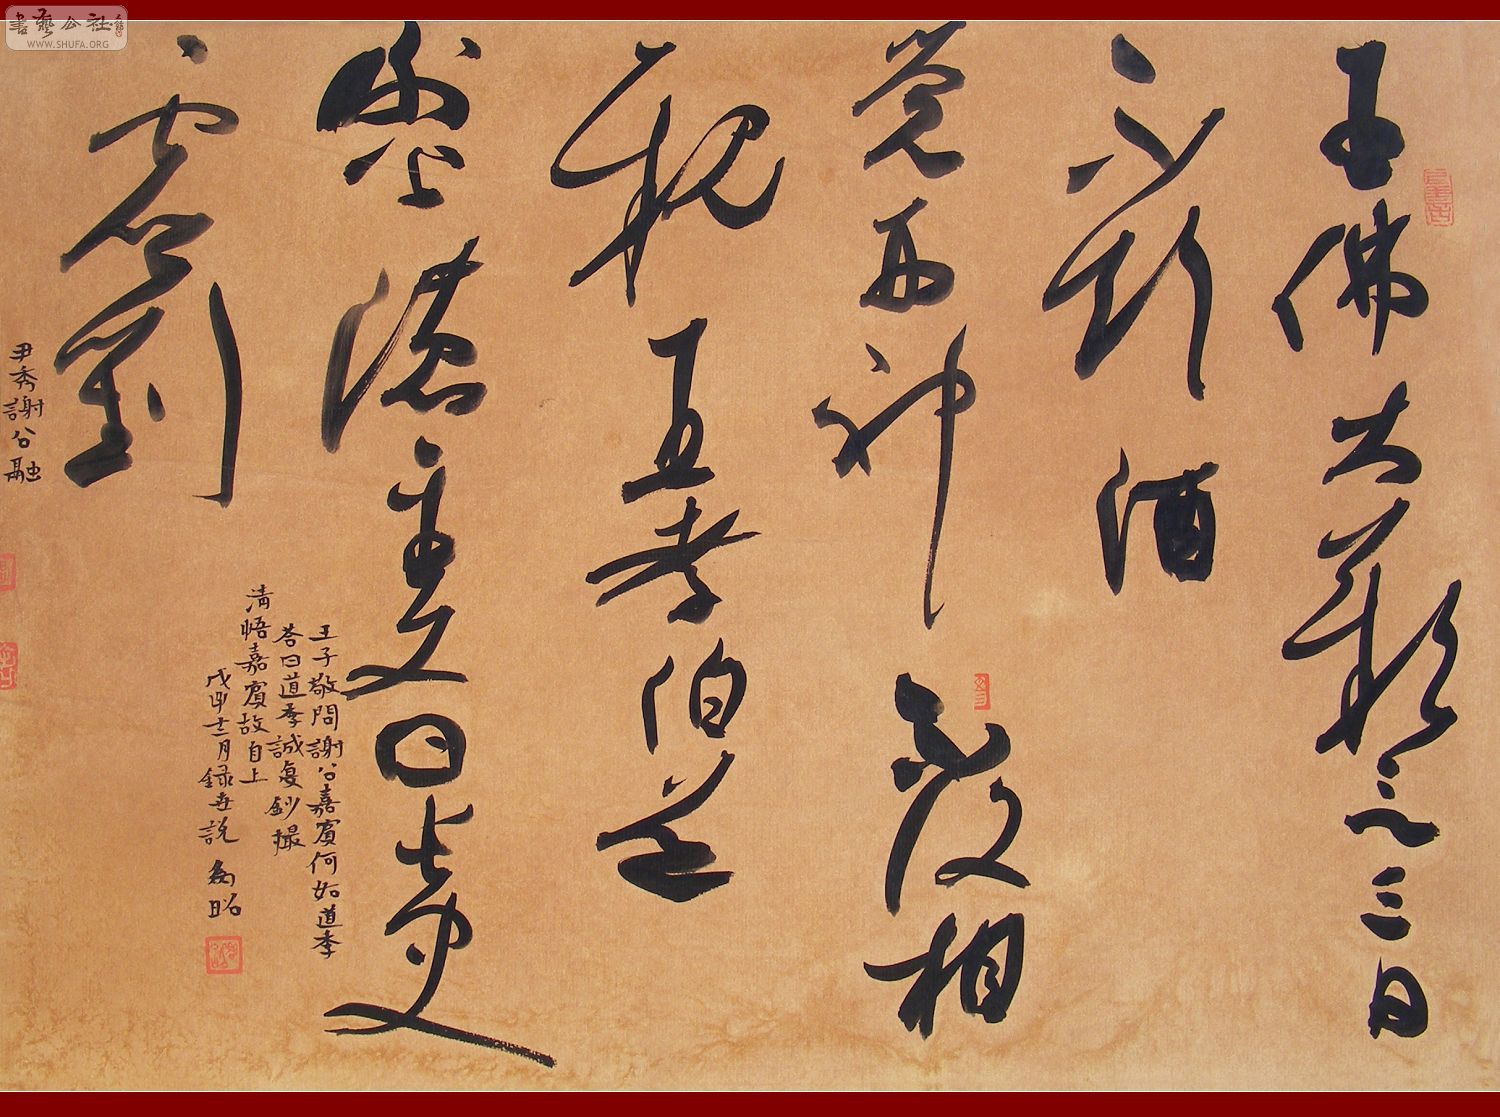 王佛大歎言三日
不飲酒
覺形神不復相
親王孝伯道
謝公濃至又曰長史
虛劉
尹秀謝公融
王子敬問謝公嘉賓何如道季
答曰道季誠復鈔撮
清悟嘉賓故自上
戊十二月録世說 昭
書藝公社
WWW.SHUFA.ORG